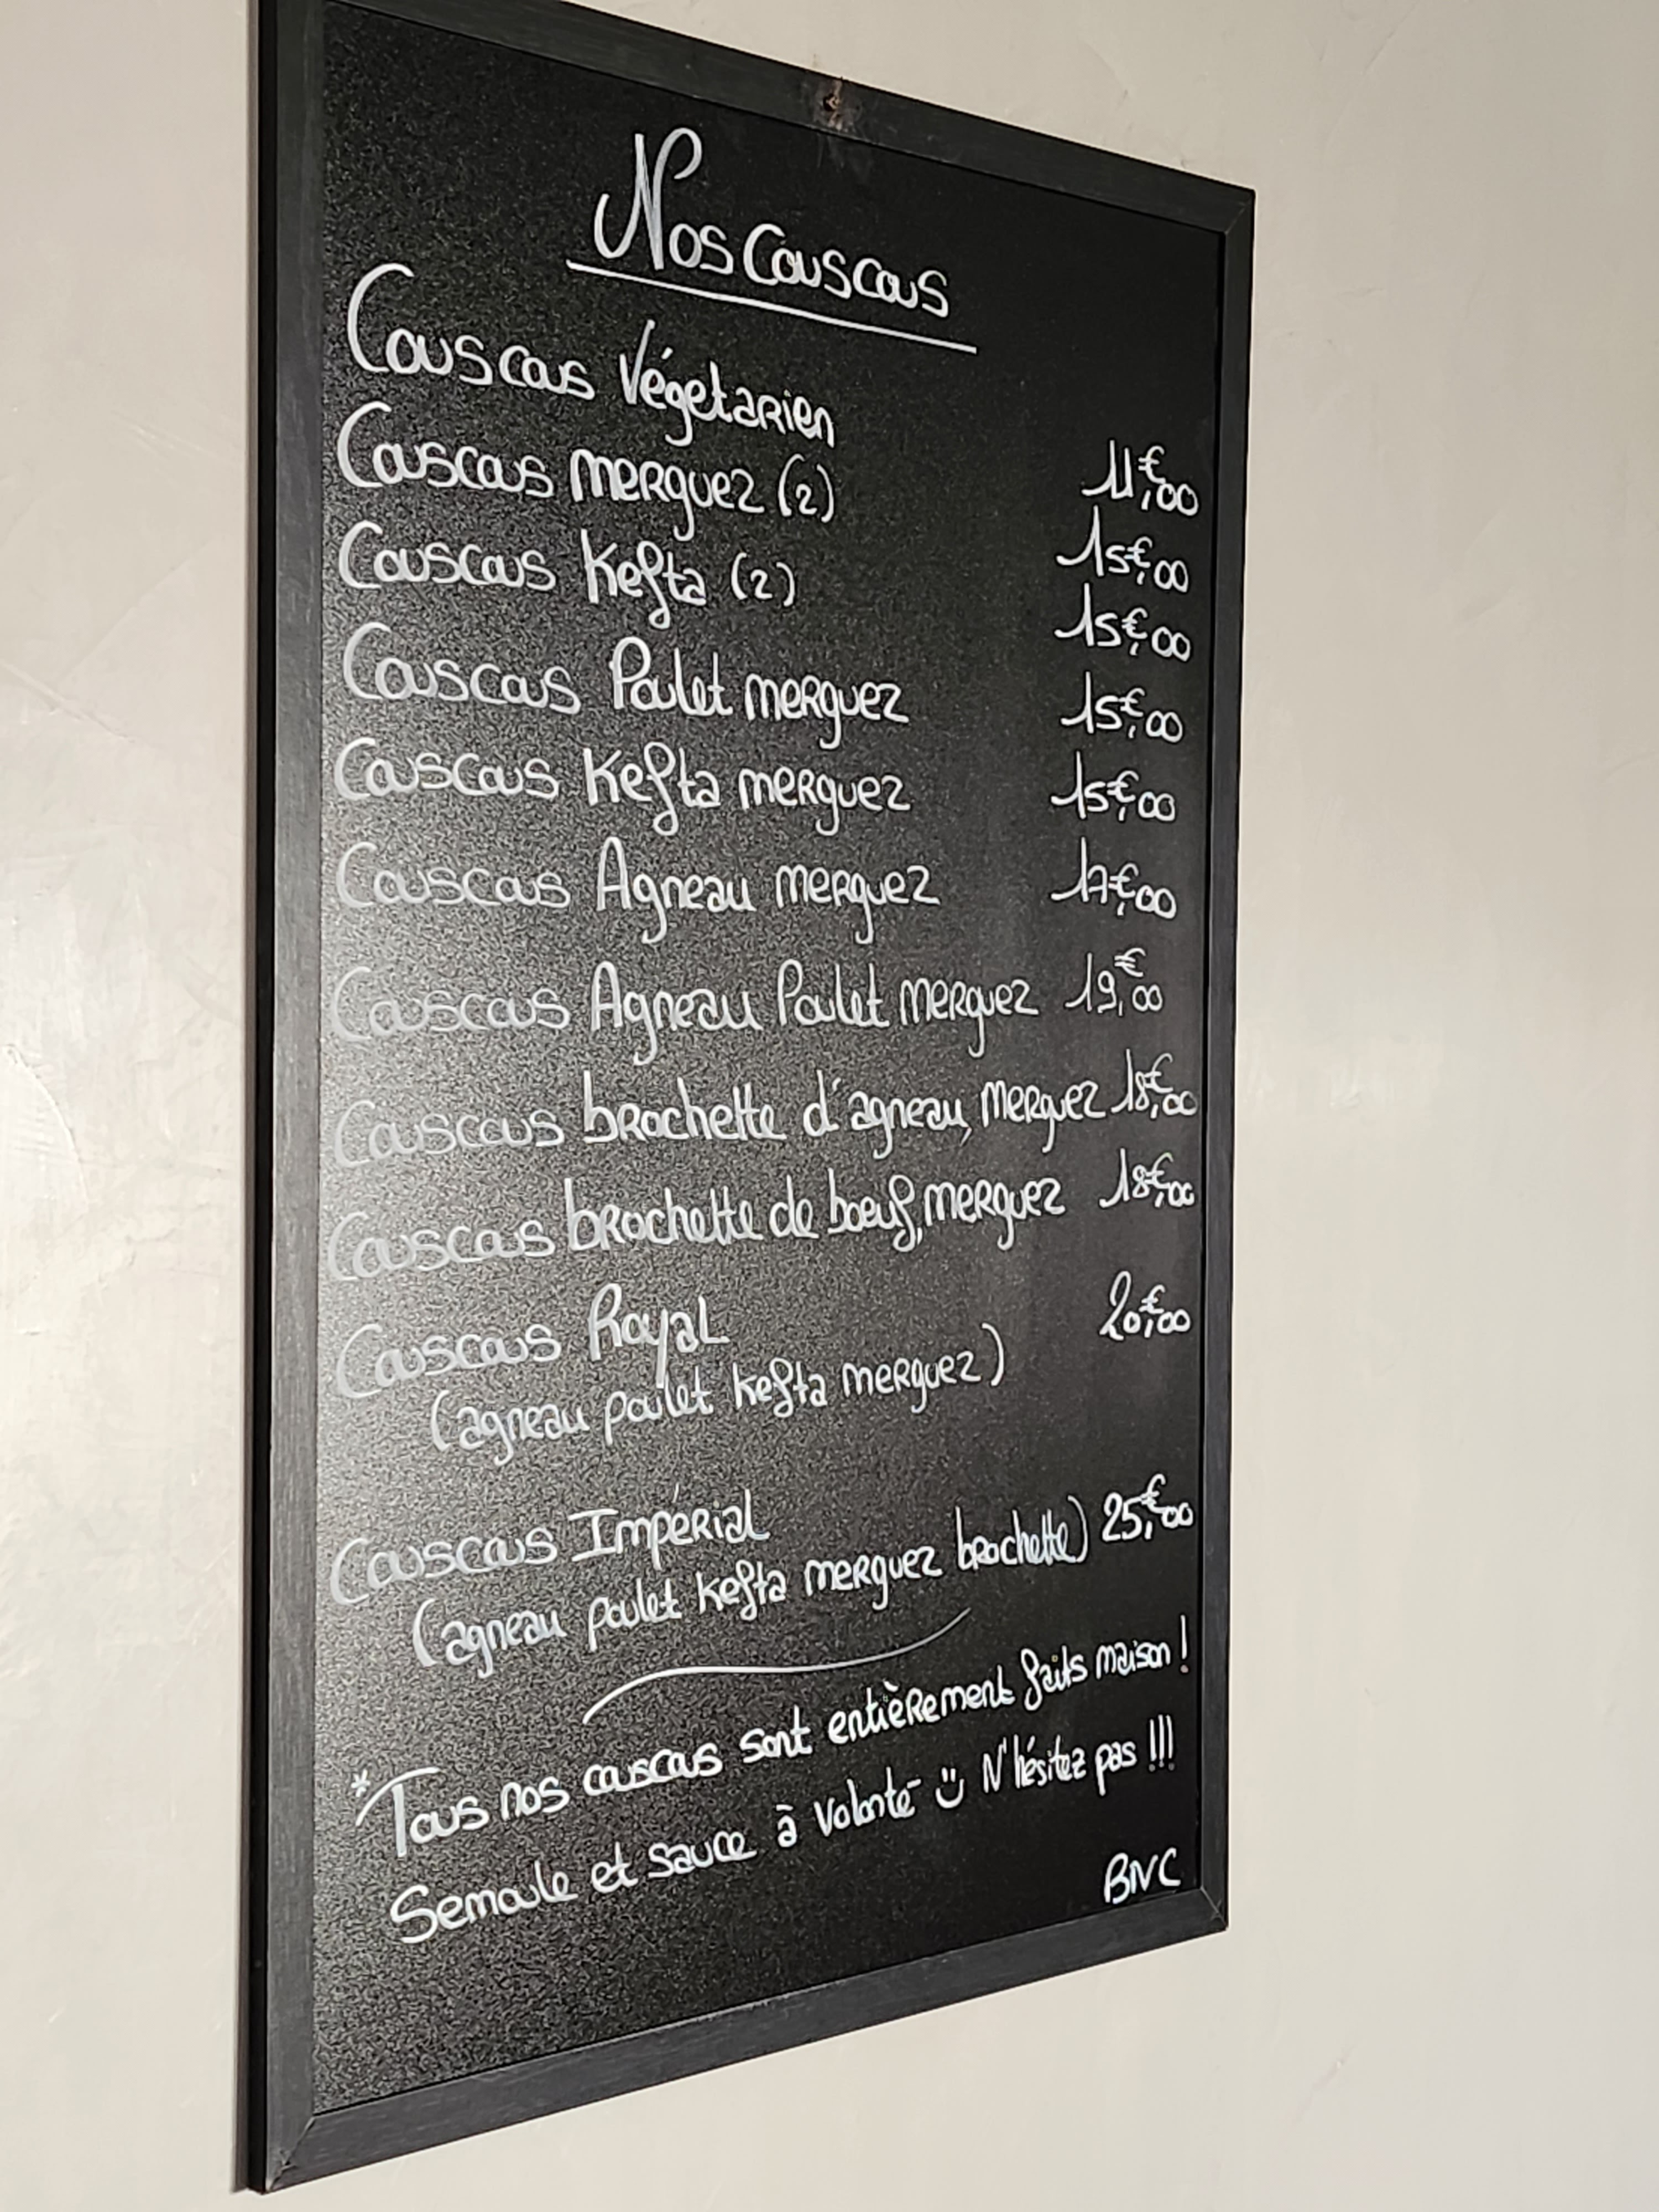 Nos Couscous
Couscous Végetarien 11€,00
Couscous merguez (2) 15€,00
Couscous Kefta (2) 15€,00
Couscous Poulet merguez 15€,00
Couscous Kefta merguez 15€,00
Couscous Agneau merguez 17€,00
Couscous Agneau Poulet merguez 19€,00
Couscous brochette d'agneau, merguez 18€,00
Couscous brochette de boeuf, merguez 18€,00
Couscous Royal 20€,00
(agneau poulet kefta merguez)
Couscous Impérial
(agneau poulet kefta merguez brochette) 25€,00
*Tous nos couscous sont entièrement faits maison !
Semoule et sauce à volonté ü N'hésitez pas !!!
BNC